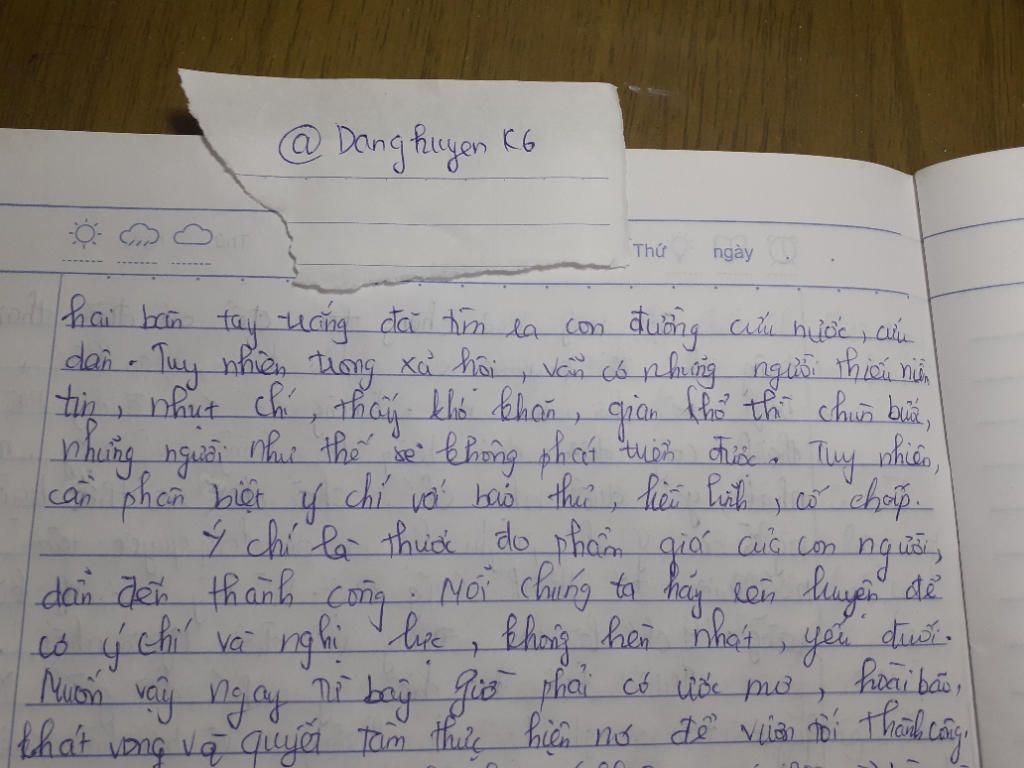 @ Danghuyen K6
Thứ ngày
hai bàn tay trắng đã tìm ra con đường cứu nước, cứu
dân. Tuy nhiên trong xã hội, vẫn có những người thiếu niềm
tin, nhụt chí, thấy khó khăn, gian khổ thì chùn bước,
những người như thế sẽ không phát triển được. Tuy nhiên,
cần phân biệt ý chí với bảo thủ, liều lĩnh, cố chấp.
Ý chí là thước đo phẩm giá của con người,
dẫn đến thành công. Mỗi chúng ta hãy rèn luyện để
có ý chí và nghị lực, không hèn nhát, yếu đuối.
Muốn vậy ngay từ bây giờ phải có ước mơ, hoài bão,
khát vọng và quyết tâm thực hiện nó để vươn tới thành công.